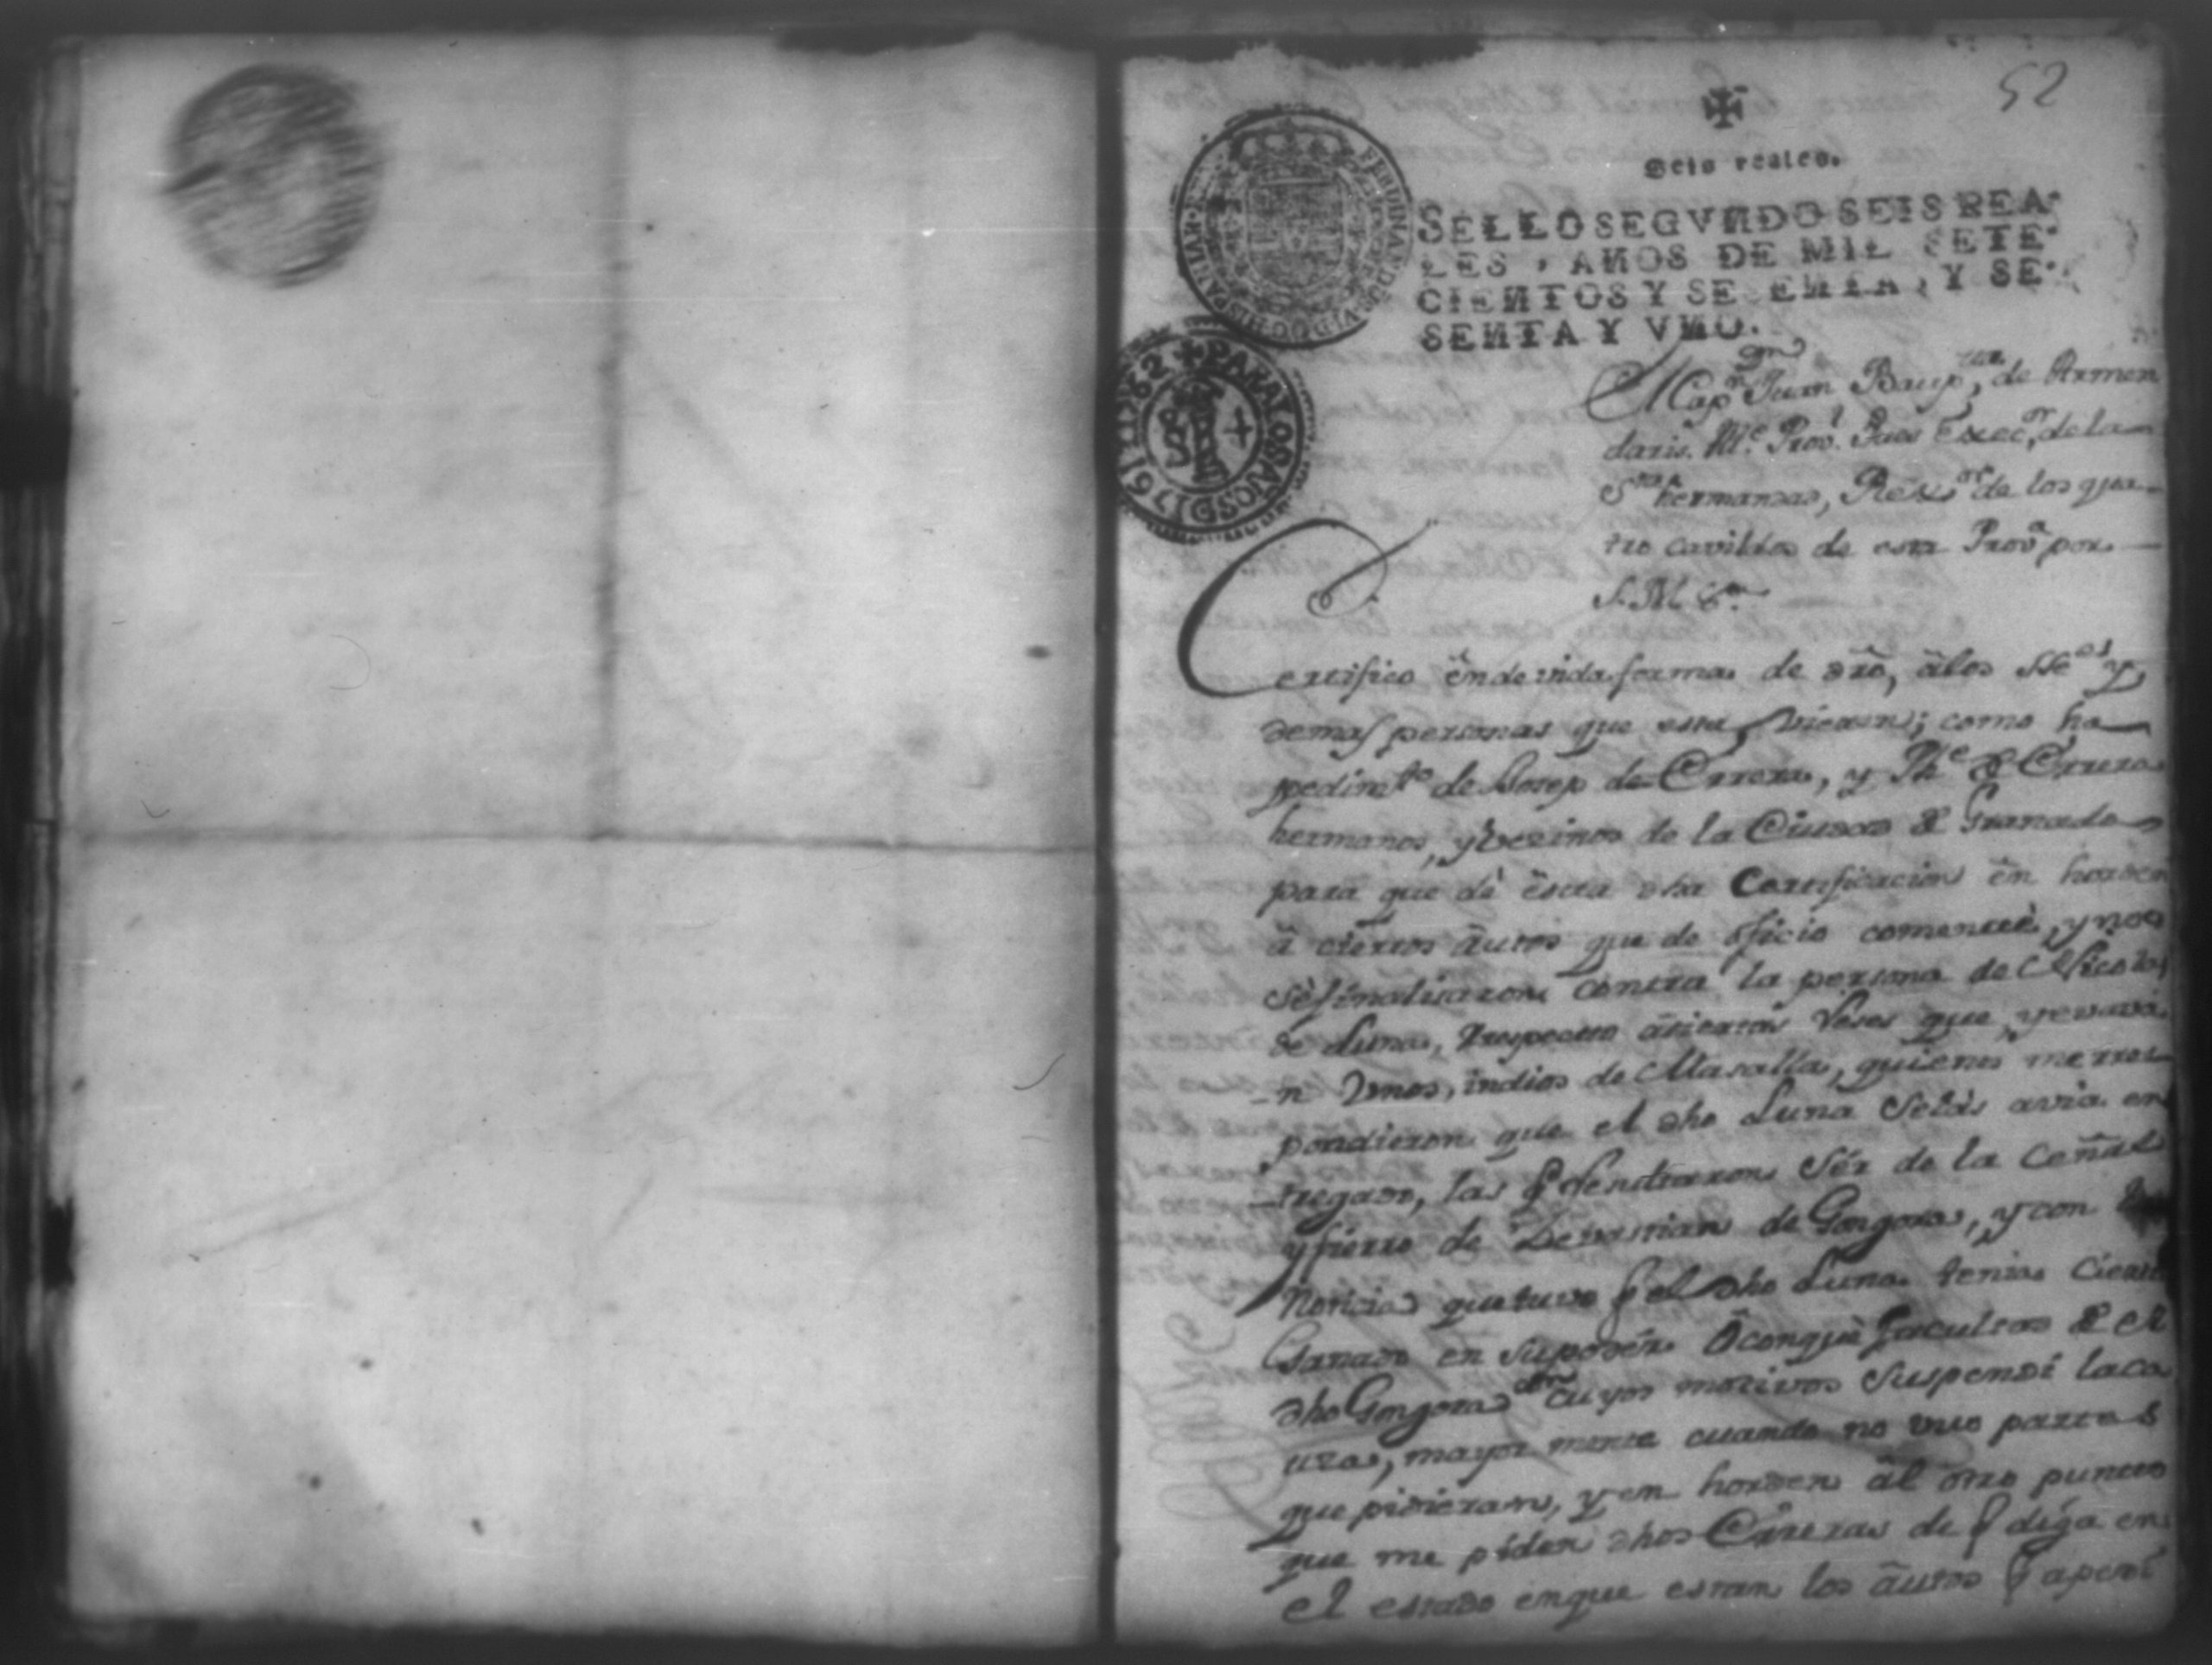 52
Seis reales.
SELLO SEGVNDO SEIS REA-
LES, AÑOS DE MIL SETE-
CIENTOS Y SESENTA, Y SE-
SENTA Y VNO.
PARA LOS AÑOS DE 1761 Y 1762
El Capⁿ Dⁿ Juan Baupᵗᵃ, de Armen
daris. Mᵉ. Provˡ. Jues Execᵒʳ, de la
Sᵗᵃ hermandad, Rexᵒʳ de los qua-
tro cavildos de esta Provᵃ por
S. M. &ᵃ
Certifico en devida forma de dr̃o, a los SSeˢ y
demas personas que esta vieren; como ha
pedimᵗᵒ de Josep de Errera, y Phᵉ de Errera
hermanos, y vezinos de la Ciudad de Granada
para que dè esta dha Certificacion en horden
â ciertos âutos que de oficio comencè, y no
se finalisaron contra la persona de Nicolas
de Luna, respecto a ciertas Reses que yevava
-n Unos, indios de Masalla, quienes me rres-
pondieron que el dho Luna Selas avia en
-tregado, las q̃ Vendraron Sér de la Ceñal
y fierro de Sevastian de Gongora, y con
Noticia que tuve q̃ el dho Luna tenia Cierto
Ganado en su podér con que facultad de el
dho Gongora con cuyos motivos Suspendi la ca
usa, mayor mente cuando no vuo partes
que pidieran, y en horden âl otro puncto
que me piden dhos Erreras de q̃ diga en
el estado en que estan los âutos q̃ a pedi